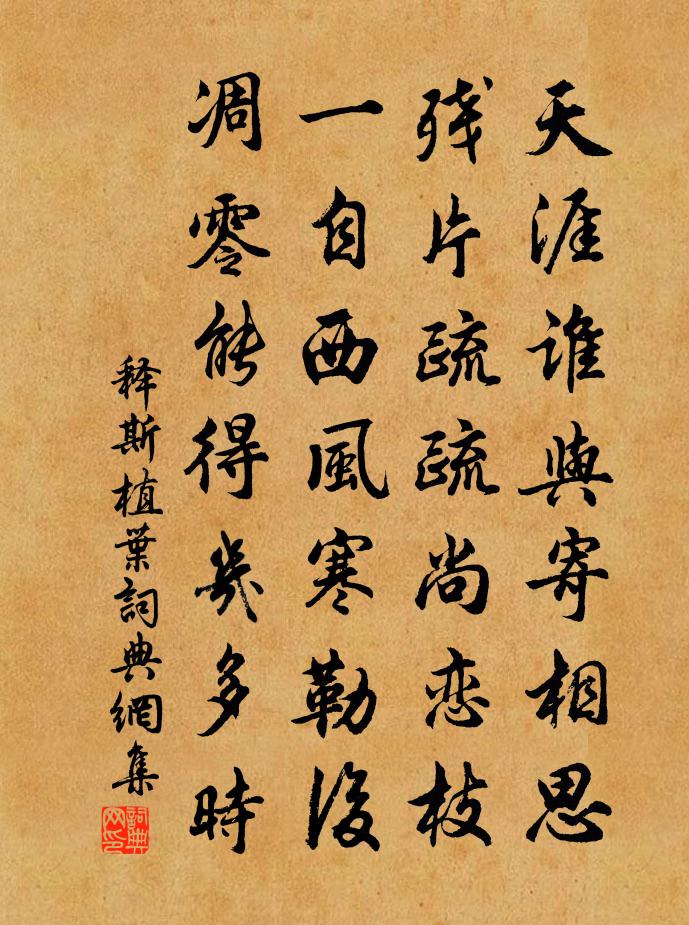 天涯誰與寄相思
残片疏疏尚恋枝
一自西風寒勒後
凋零能得幾多時
释斯植葉詞典網集
詞典网印